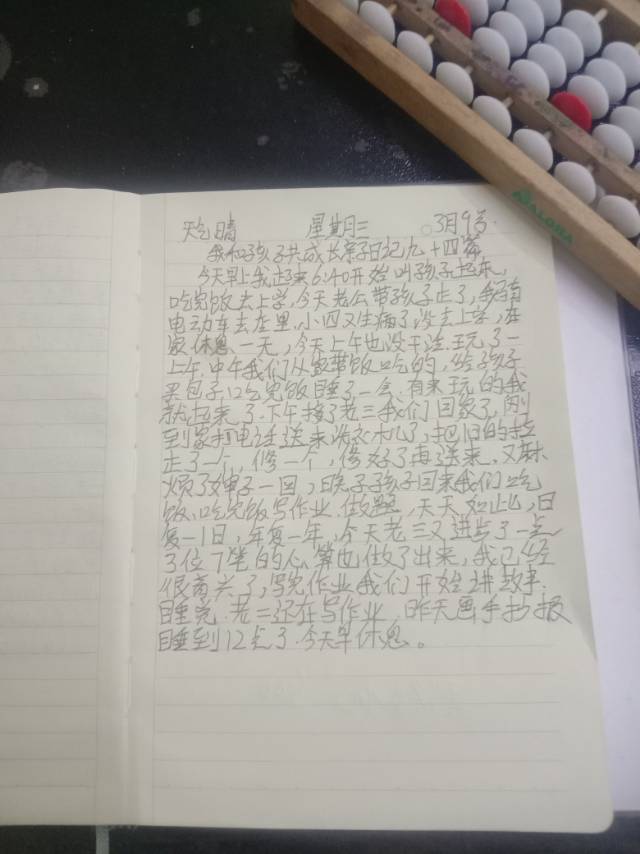 天气晴 星期三 3月9号
我和孩子共成长亲子日记九十四篇
今天早上我起来6:40开始叫孩子起床,
吃完饭去上学,今天老公带孩子走了,我骑
电动车去店里,小四又生病了没去上学,在
家休息一天,今天上午也没干活,玩了一
上午,中午我们从家带饭吃的,给孩子
买包子,吃完饭睡了一会,有来玩的我
就起来了.下午接了老三我们回家了,刚
到家打电话送来洗衣机了,把旧的拉
走了一个,修一个,修好了再送来,又麻
烦了婶子一回,晚子孩子回来我们吃
饭,吃完饭写作业,做题,天天如此,日
复一日,年复一年,今天老三又进步了一点
3位7笔的心算也做了出来,我已经
很高兴了,写完作业我们开始讲故事,
睡觉.老二还在写作业,昨天画手抄报
睡到12点了.今天早休息。
ALOHA